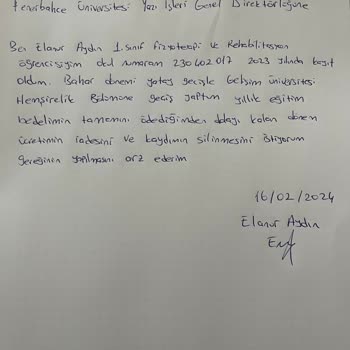 Fenerbahçe Üniversitesi Yazı İşleri Genel Direktörlüğüne
Ben Elanur Aydın 1. sınıf Fizyoterapi ve Rehabilitasyon
öğrencisiyim okul numaram 230402017 2023 yılında kayıt
oldum. Bahar dönemi yatay geçişle Gelişim üniversitesi
Hemşirelik Bölümüne geçiş yaptım yıllık eğitim
bedelimin tamamını ödediğimden dolayı kalan dönem
ücretimin iadesini ve kaydımın silinmesini istiyorum
Gereğinin yapılmasını arz ederim
16/02/2024
Elanur Aydın